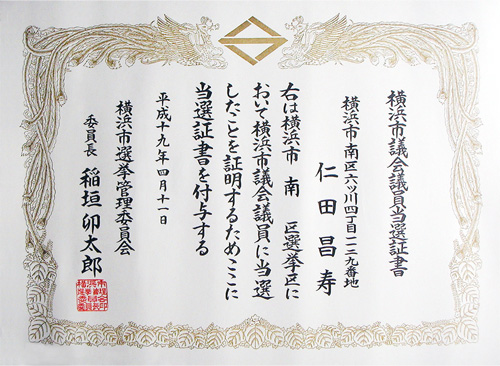 横浜市議会議員当選証書
横浜市南区六ッ川四丁目一二三九番地
仁田昌寿
右は横浜市 南 区選挙区に
おいて横浜市議会議員に当選
したことを証明するためここに
当選証書を付与する
平成十九年四月十一日
横浜市選挙管理委員会
委員長 稲垣卯太郎